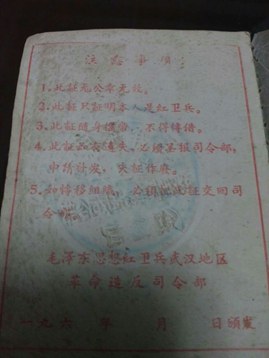 注意事项
1.此证无公章无效。
2.此证只证明本人是红卫兵。
3.此证随身携带,不得传借。
4.此证如有遗失,必须呈报司令部,
申请补发,失证作废。
5.如转移组织,必须把此证交回司
令部。
毛泽东思想红卫兵武汉地区
革命造反司令部
一九六 年 月 日颁发